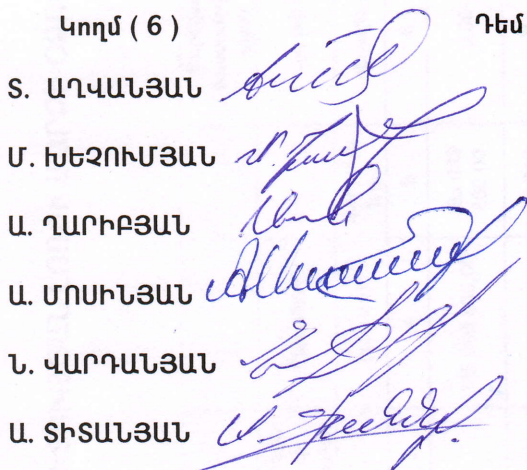 Կողմ ( 6 ) Դեմ
Տ. ԱՂՎԱՆՅԱՆ
Մ. ԽԵՉՈՒՄՅԱՆ
Ա. ՂԱՐԻԲՅԱՆ
Ա. ՄՈՍԻՆՅԱՆ
Ն. ՎԱՐԴԱՆՅԱՆ
Ա. ՏԻՏԱՆՅԱՆ